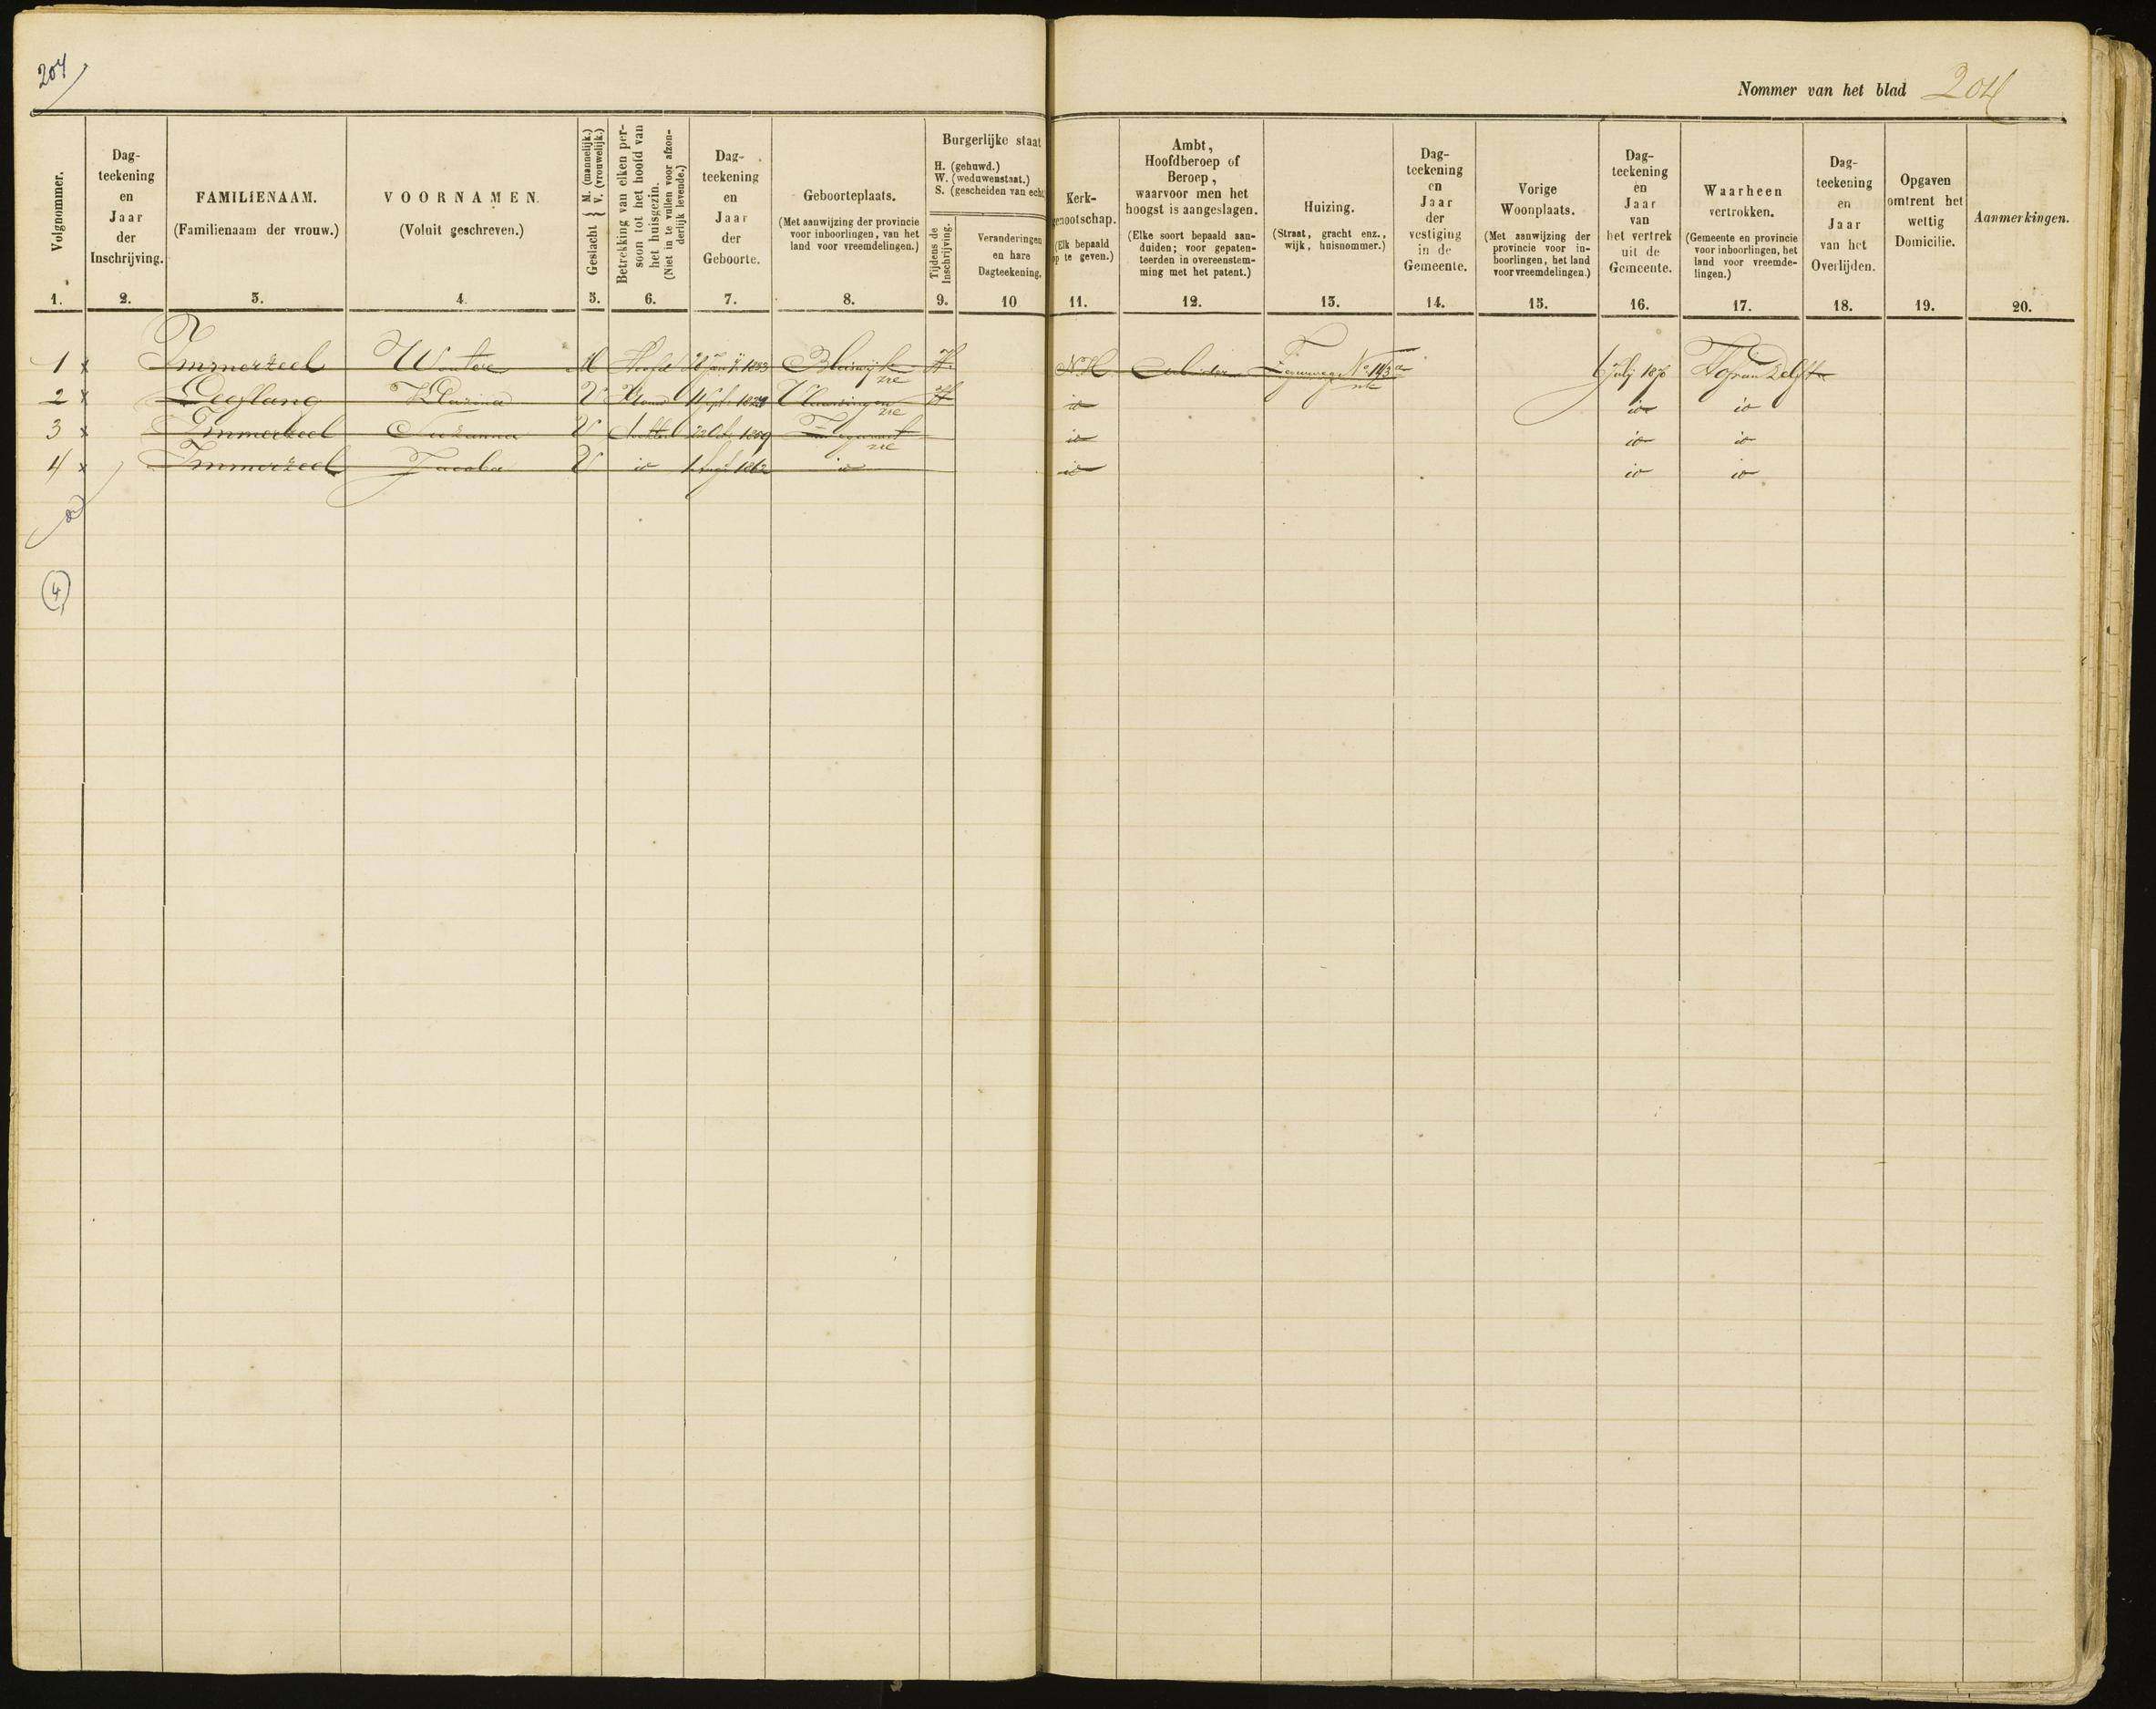 204
Nommer van het blad 204
Volgnommer.
1.
Dag-
teekening
en
Jaar
der
Inschrijving.
2.
FAMILIENAAM.
(Familienaam der vrouw.)
3.
VOORNAMEN.
(Voluit geschreven.)
4.
Geslacht { M. (mannelijk.)
V. (vrouwelijk.)
5.
Betrekking van elken per-
soon tot het hoofd van
het huisgezin.
(Niet in te vullen voor afzon-
derlijk levende.)
6.
Dag-
teekening
en
Jaar
der
Geboorte.
7.
Geboorteplaats.
(Met aanwijzing der provincie
voor inboorlingen, van het
land voor vreemdelingen.)
8.
Burgerlijke staat
H. (gehuwd.)
W. (weduwenstaat.)
S. (gescheiden van echt
Tijdens de
Inschrijving.
9.
Veranderingen
en hare
Dagteekening.
10
Kerk-
genootschap.
(Elk bepaald
op te geven.)
11.
Ambt,
Hoofdberoep of
Beroep,
waarvoor men het
hoogst is aangeslagen.
(Elke soort bepaald aan-
duiden; voor gepaten-
teerden in overeenstem-
ming met het patent.)
12.
Huizing.
(Straat, gracht enz.,
wijk, huisnommer.)
13.
Dag-
teekening
en
Jaar
der
vestiging
in de
Gemeente.
14.
Vorige
Woonplaats.
(Met aanwijzing der
provincie voor in-
boorlingen, het land
voor vreemdelingen.)
15.
Dag-
teekening
en
Jaar
van
het vertrek
uit de
Gemeente.
16.
Waarheen
vertrokken.
(Gemeente en provincie
voor inboorlingen, het
land voor vreemde-
lingen.)
17.
Dag-
teekening
en
Jaar
van het
Overlijden.
18.
Opgaven
omtrent het
wettig
Domicilie.
19.
Aanmerkingen.
20.
1 x Immerzeel Wouter M Hoofd Bleiswijk H. NH Arbeider No 113a 6 Julij 1876 Hof van Delft
2 x Leeflang V H io io io
3 x Immerzeel Suzanna V 22 Oct 1859 io io io
4 x Immerzeel Jacoba V io 1862 io io io io
4